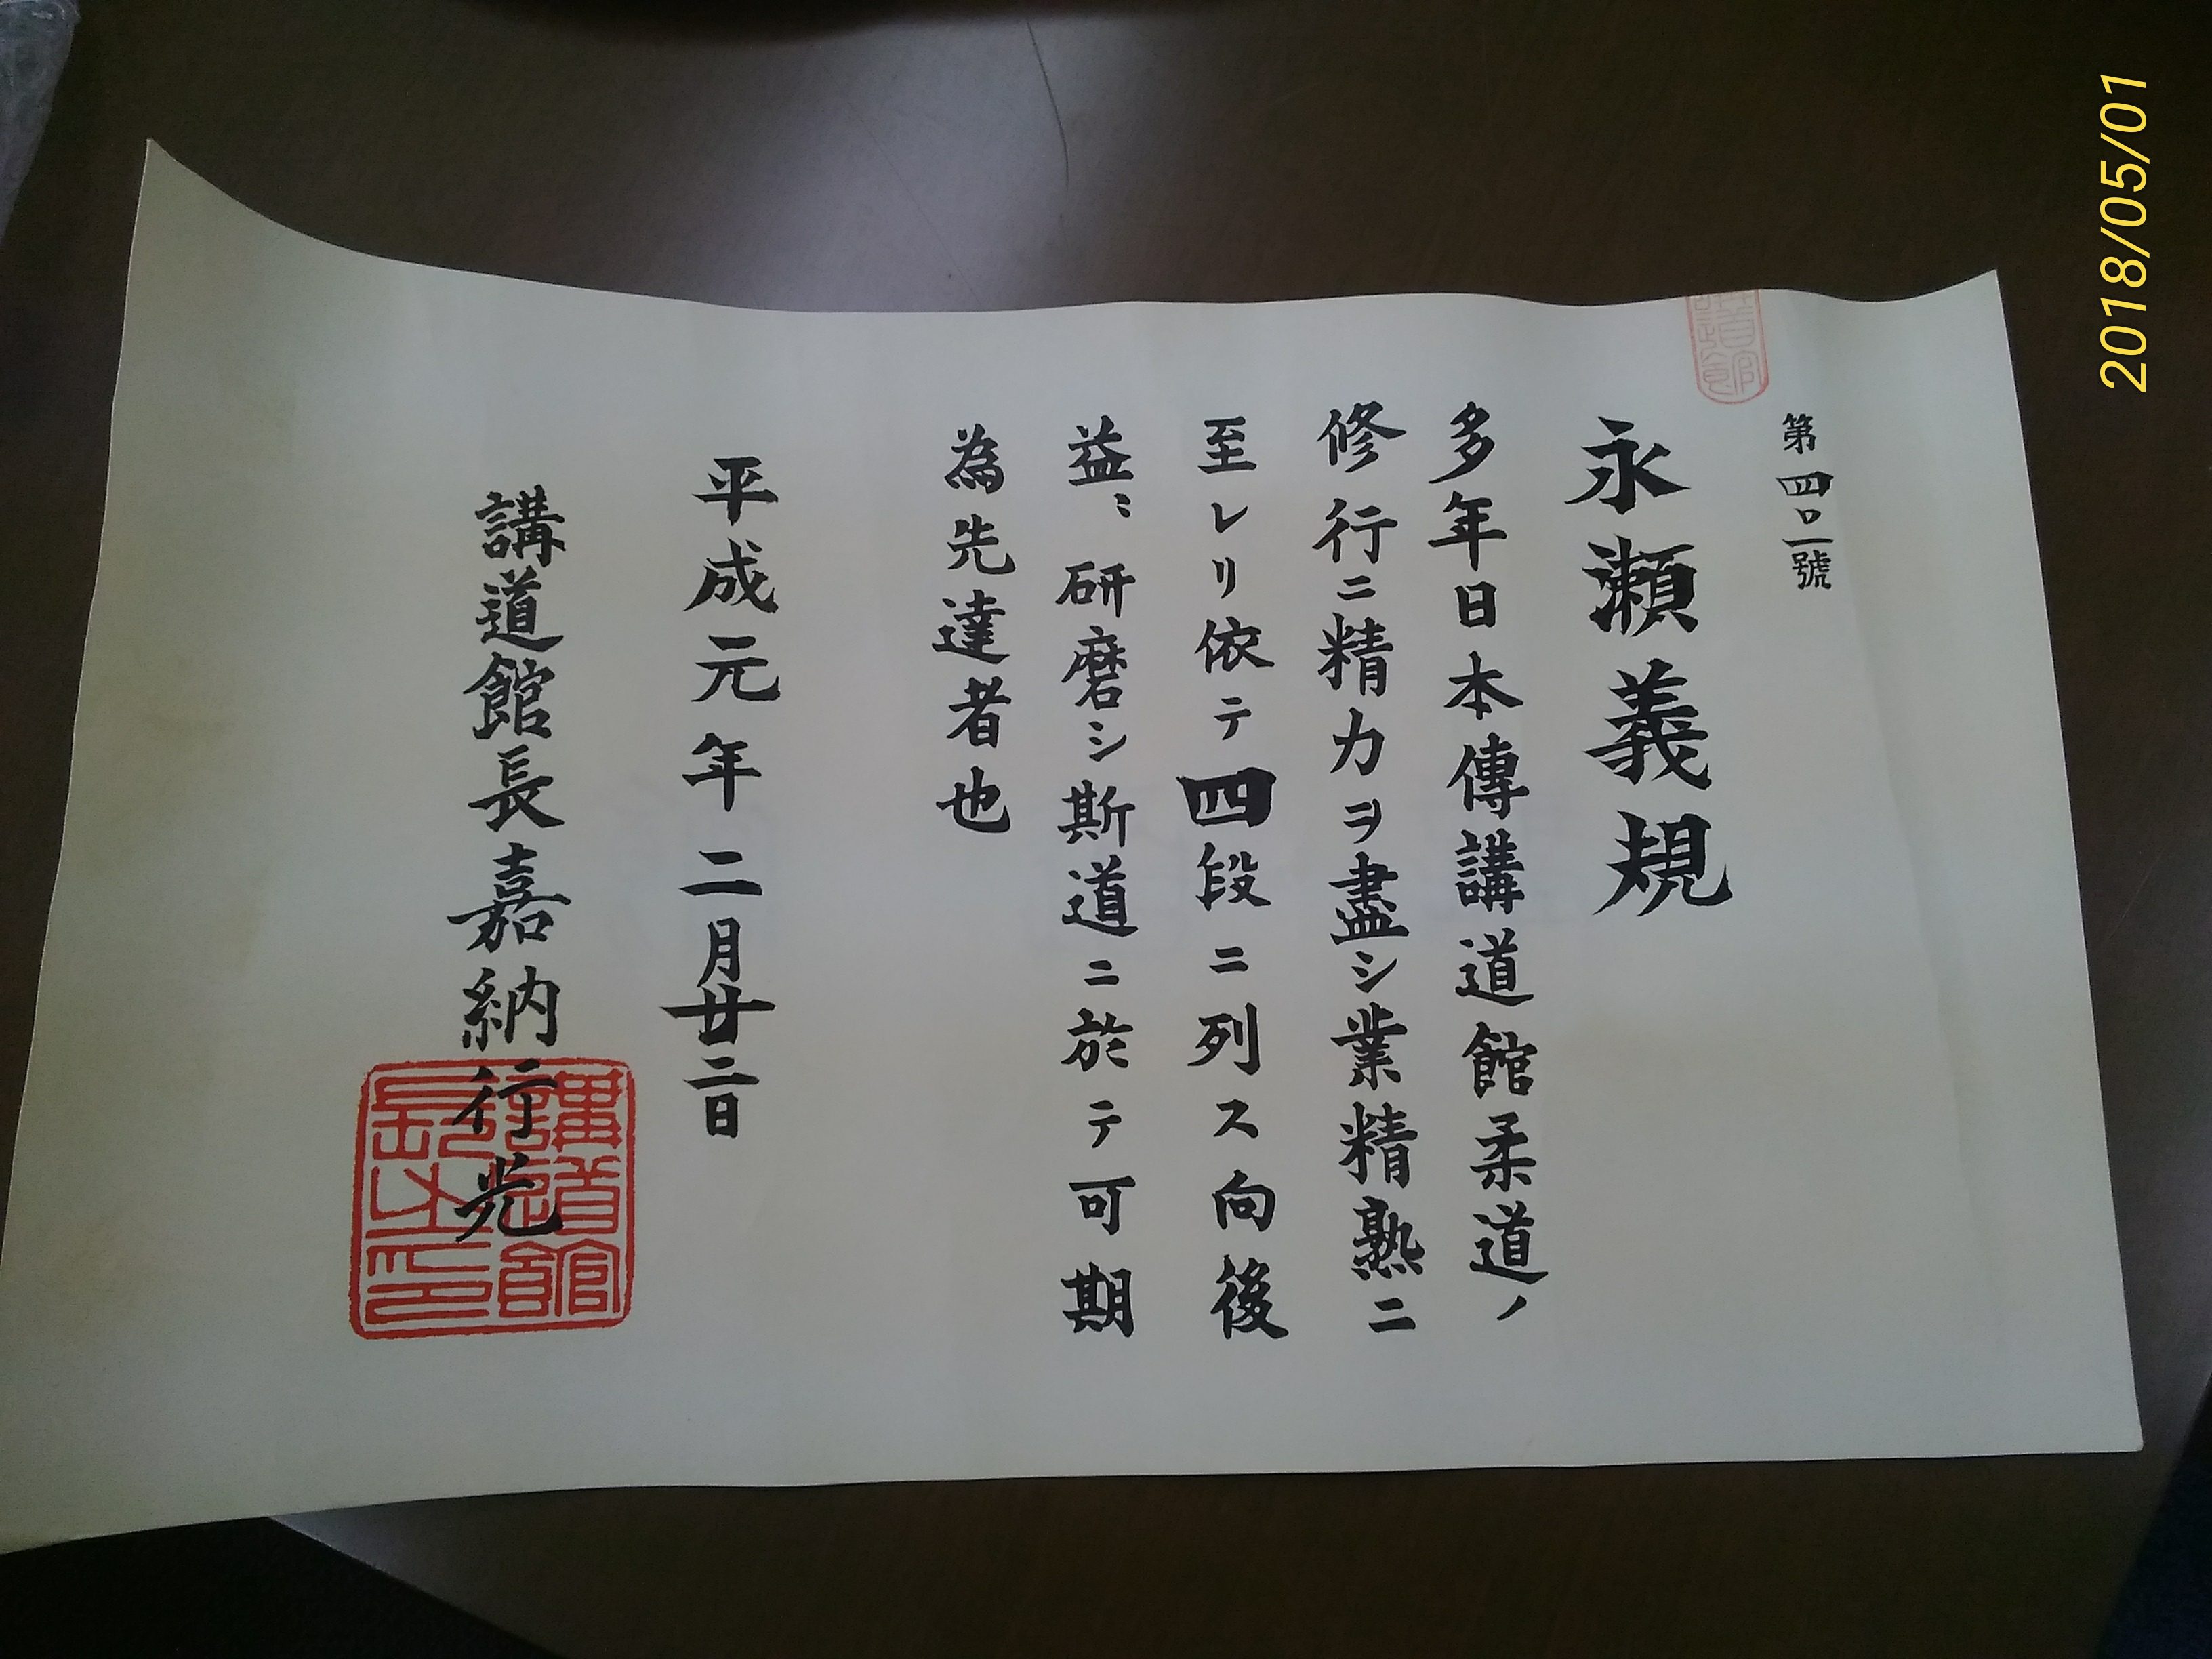 第四〇一號
永瀬義規
多年日本傳講道館柔道ノ
修行ニ精力ヲ盡シ業精熟ニ
至レリ依テ四段ニ列ス向後
益〻研磨シ斯道ニ於テ可期
為先達者也
平成元年二月廿二日
講道館長嘉納行光
講道館長之印
講道館
2018/05/01